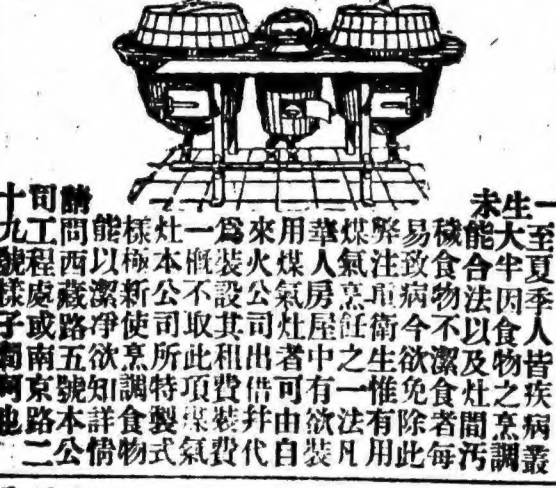 一至夏季人皆疾病叢
生大半因食物之烹調
未能合法以及灶間汚
穢食物不潔食者每
易致病今欲免除此
弊注重衛生惟有用
煤氣烹飪之一法凡
華人房屋中有欲裝
用煤氣灶者可由自
來火公司出借幷代
爲裝設其租費裝費
一概不取此項煤氣
灶本公司所特製式
樣極新使烹調食物
能以潔净欲知詳情
請問西藏路五號本公
司工程處或南京路二
十九號樣子間可也